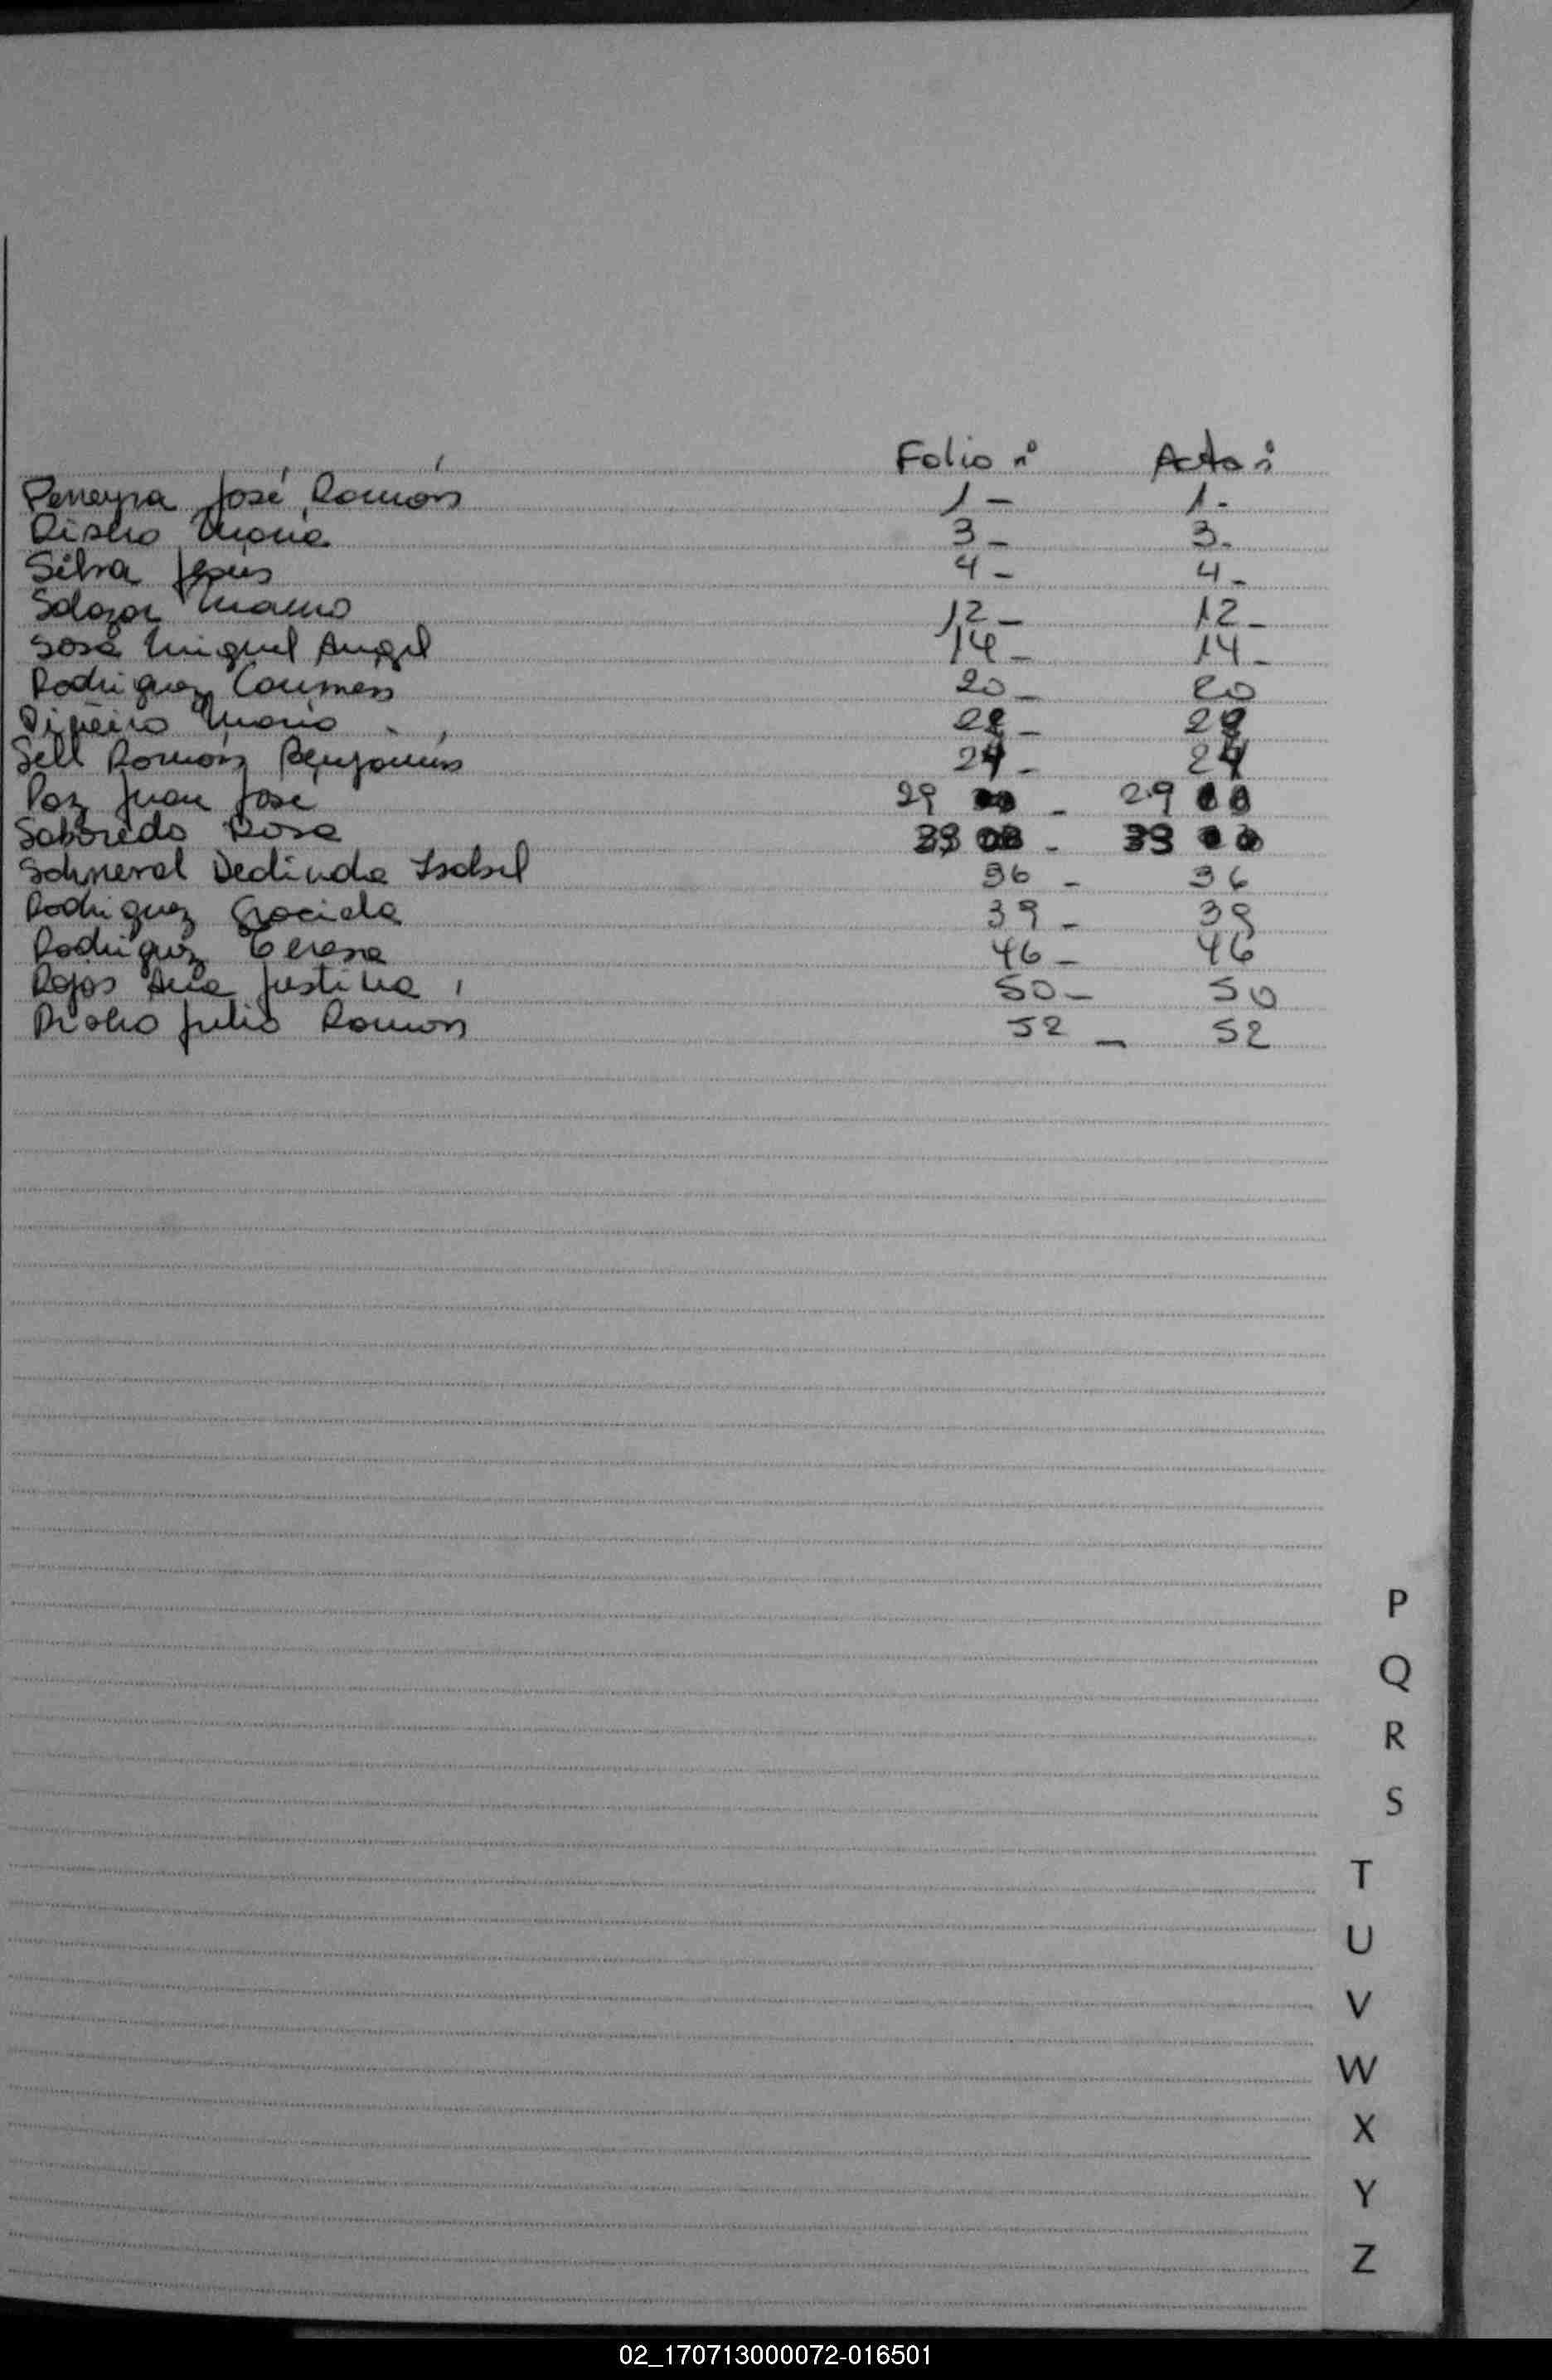 Folio nº Acta nº
Pereyra José Ramón 1- 1-
María 3- 3-
Silva Jesus 4- 4-
Salazar 12- 12-
Sosa Miguel Angel 14- 14-
Rodriguez Carmen 20- 20
Piñeiro 22- 22
Sell Ramón Benjamín 24- 24
Paz Juan José 29 - 29
Saboredo Rosa 33 - 33
Isabel 36 - 36
Rodriguez Graciela 39- 39
Rodriguez Teresa 46- 46
Rojas Ana Justina 50- 50
Julio Ramon 52 - 52
P
Q
R
S
T
U
V
W
X
Y
Z
02_170713000072-016501